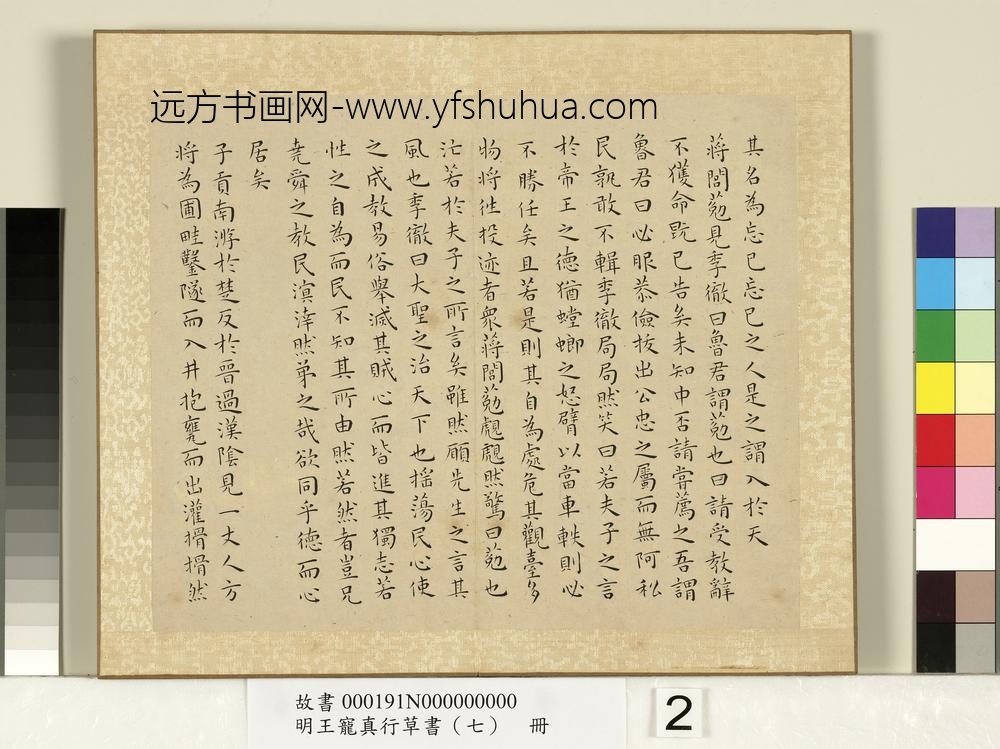 远方书画网-www.yfshuhua.com
其名為忘已忘已之人是之謂入於天
蔣閭葂見季徹曰魯君謂葂也曰請受教辭
不獲命既已告矣未知中否請嘗薦之吾謂
魯君曰必服恭儉拔出公忠之屬而無阿私
民孰敢不輯季徹局局然笑曰若夫子之言
於帝王之德猶螳螂之怒臂以當車軼則必
不勝任矣且若是則其自為處危其觀臺多
物將往投迹者衆蔣閭葂覤覤然驚曰葂也
汒若於夫子之所言矣雖然願先生之言其
風也季徹曰大聖之治天下也摇蕩民心使
之成教易俗舉滅其賊心而皆進其獨志若
性之自為而民不知其所由然若然者豈兄
堯舜之教民溟涬然弟之哉欲同乎德而心
居矣
子貢南游於楚反於晉過漢陰見一丈人方
將為圃畦鑿隧而入井抱甕而出灌搰搰然
故書 000191N000000000
明王寵真行草書（七） 冊
2